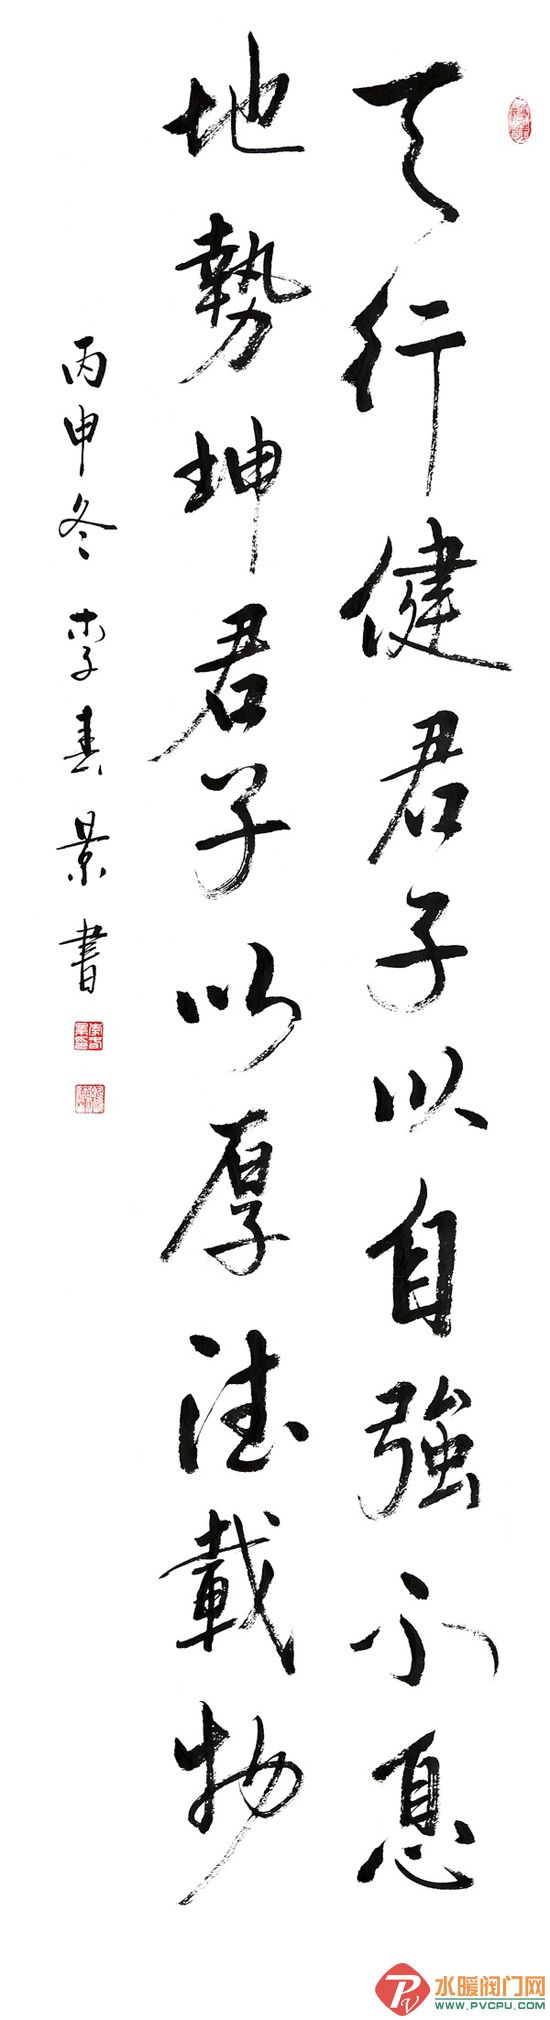 天行健君子以自強不息
地勢坤君子以厚德載物
丙申冬 李春景書
水暖阀门网
WWW.PVCPU.COM